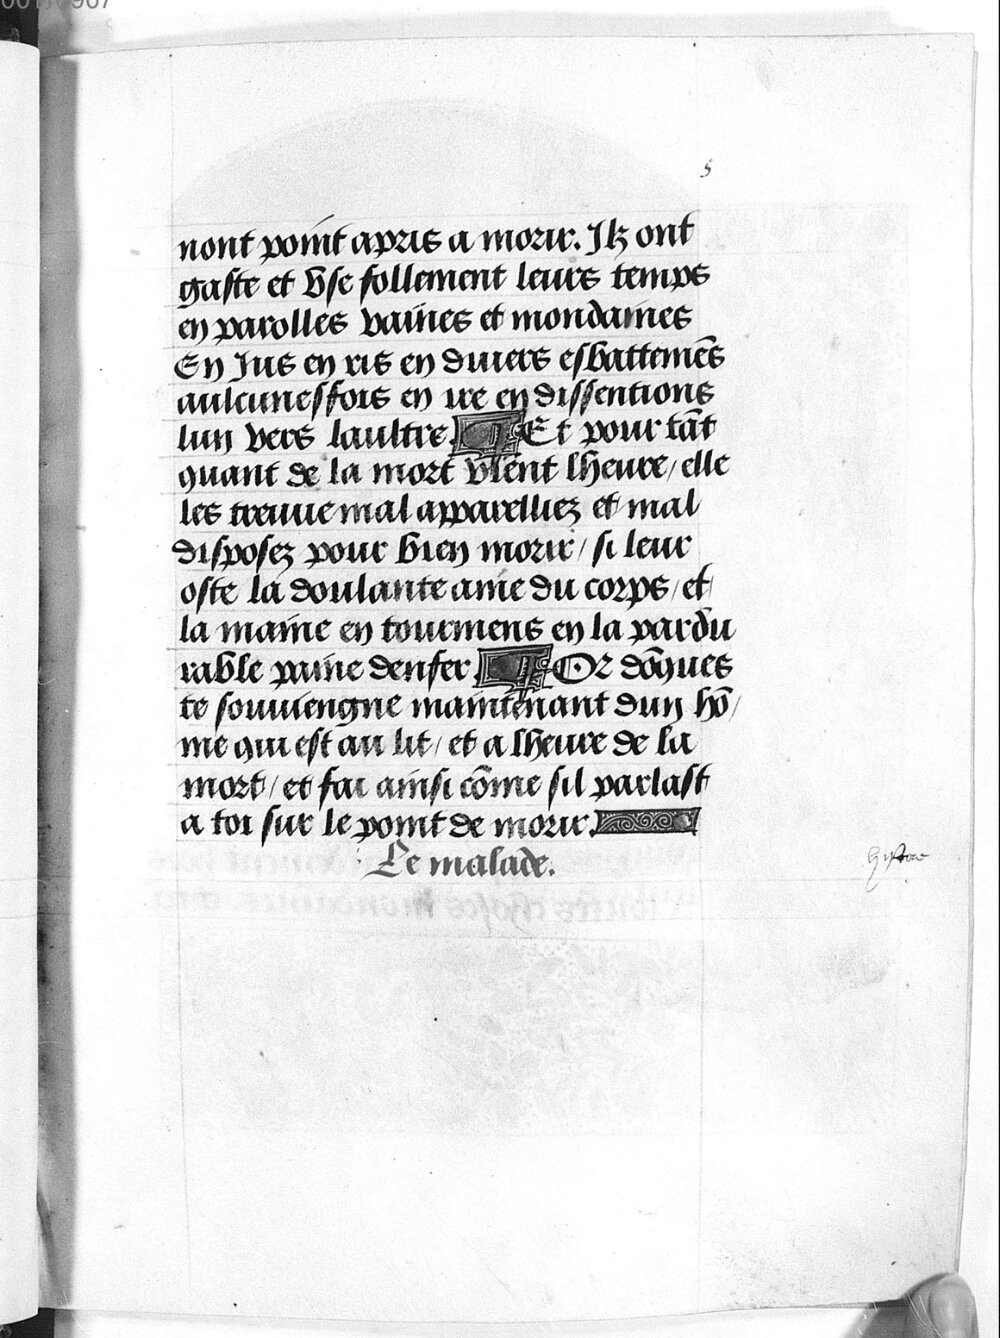 5
nont point apris a morir. Jlz ont
gaste et vse follement leurs temps
en parolles vaines et mondaines
En Jus en ris en diuers esbattemēs
aulcunesfois en ire en dissentions
lun vers laultre Et pour tāt
quant de la mort vient lheure/ elle
les treuue mal apparelliez et mal
disposez pour bien morir/ si leur
oste la doulante ame du corps/ et
la maine en tourmens en la pardu
rable paine denfer Or dōques
te souuiengne maintenant dun hō/
me qui est au lit/ et a lheure de la
mort/ et fai ainsi cōme sil parlast
a toi sur le point de morir.
Le malade.